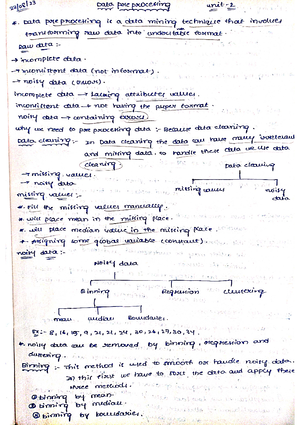 22/08/23 Data pre processing unit-2
*. Data pre processing is a data mining technique that involves
transforming raw data into understandable format.
raw data :-
→ incomplete data.
→ inconsistent data (not in format).
→ noisy data (errors).
incomplete data → Lacking attributes values.
inconsistent data → not having the proper format.
noisy data → containing errors.
why we need to pre processing data :- Because data cleaning.
Data cleaning :- In Data cleaning the data can have many irrelevant
and missing data. to handle these data we use data
cleaning.
Data cleaning
→ missing values.
→ noisy data.
missing values
noisy data
missing values :-
* Fill the missing values manually.
* will place mean in the missing place.
* will place median value in the missing place.
* Assigning some global variable (constant).
noisy data :-
Noisy data
Binning Regression clustering
mean median Boundaries.
* noisy data can be removed by binning, regression and
clustering.
Binning :- This method is used to smooth or handle noisy data.
In this first we have to sort the data and apply these
three methods.
① binning by mean
② binning by median
③ binning by boundaries.